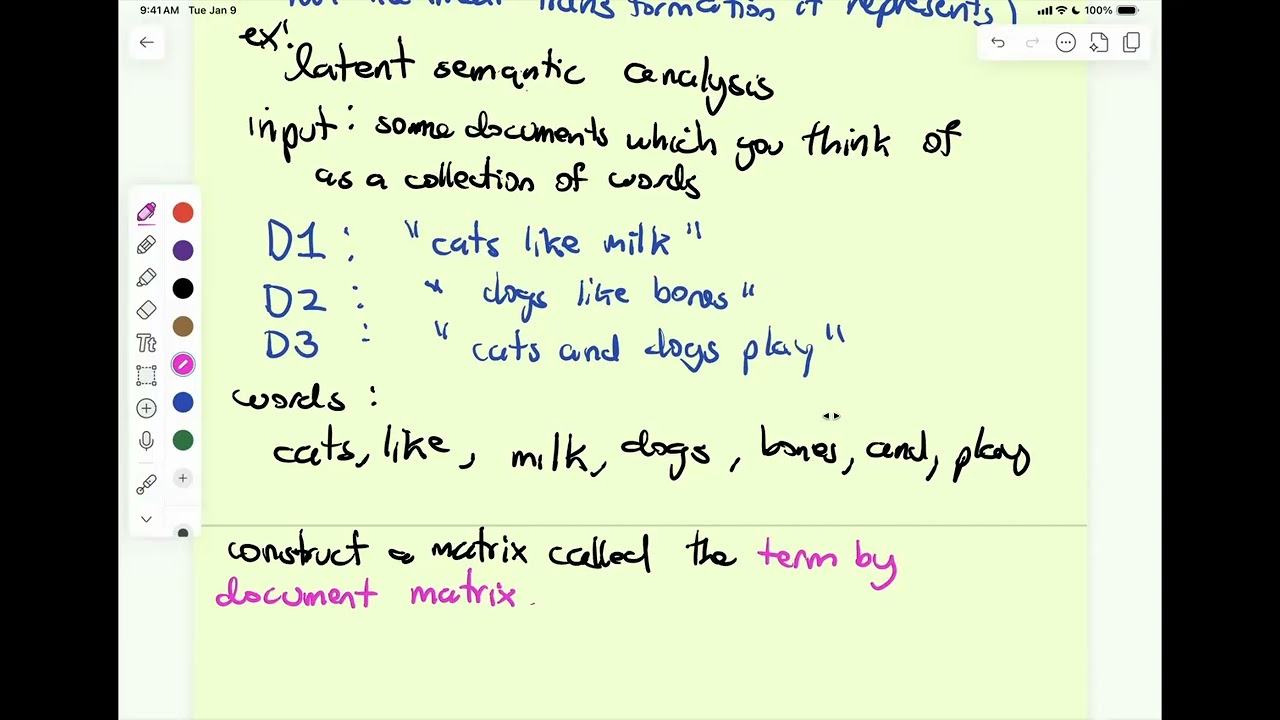 9:41 AM Tue Jan 9
100%
transformation it represents)
ex:
latent semantic analysis
input: some documents which you think of
as a collection of words
D1: "cats like milk"
D2: "dogs like bones"
D3: "cats and dogs play"
words:
cats, like, milk, dogs, bones, and, play
construct a matrix called the term by
document matrix.
Tt